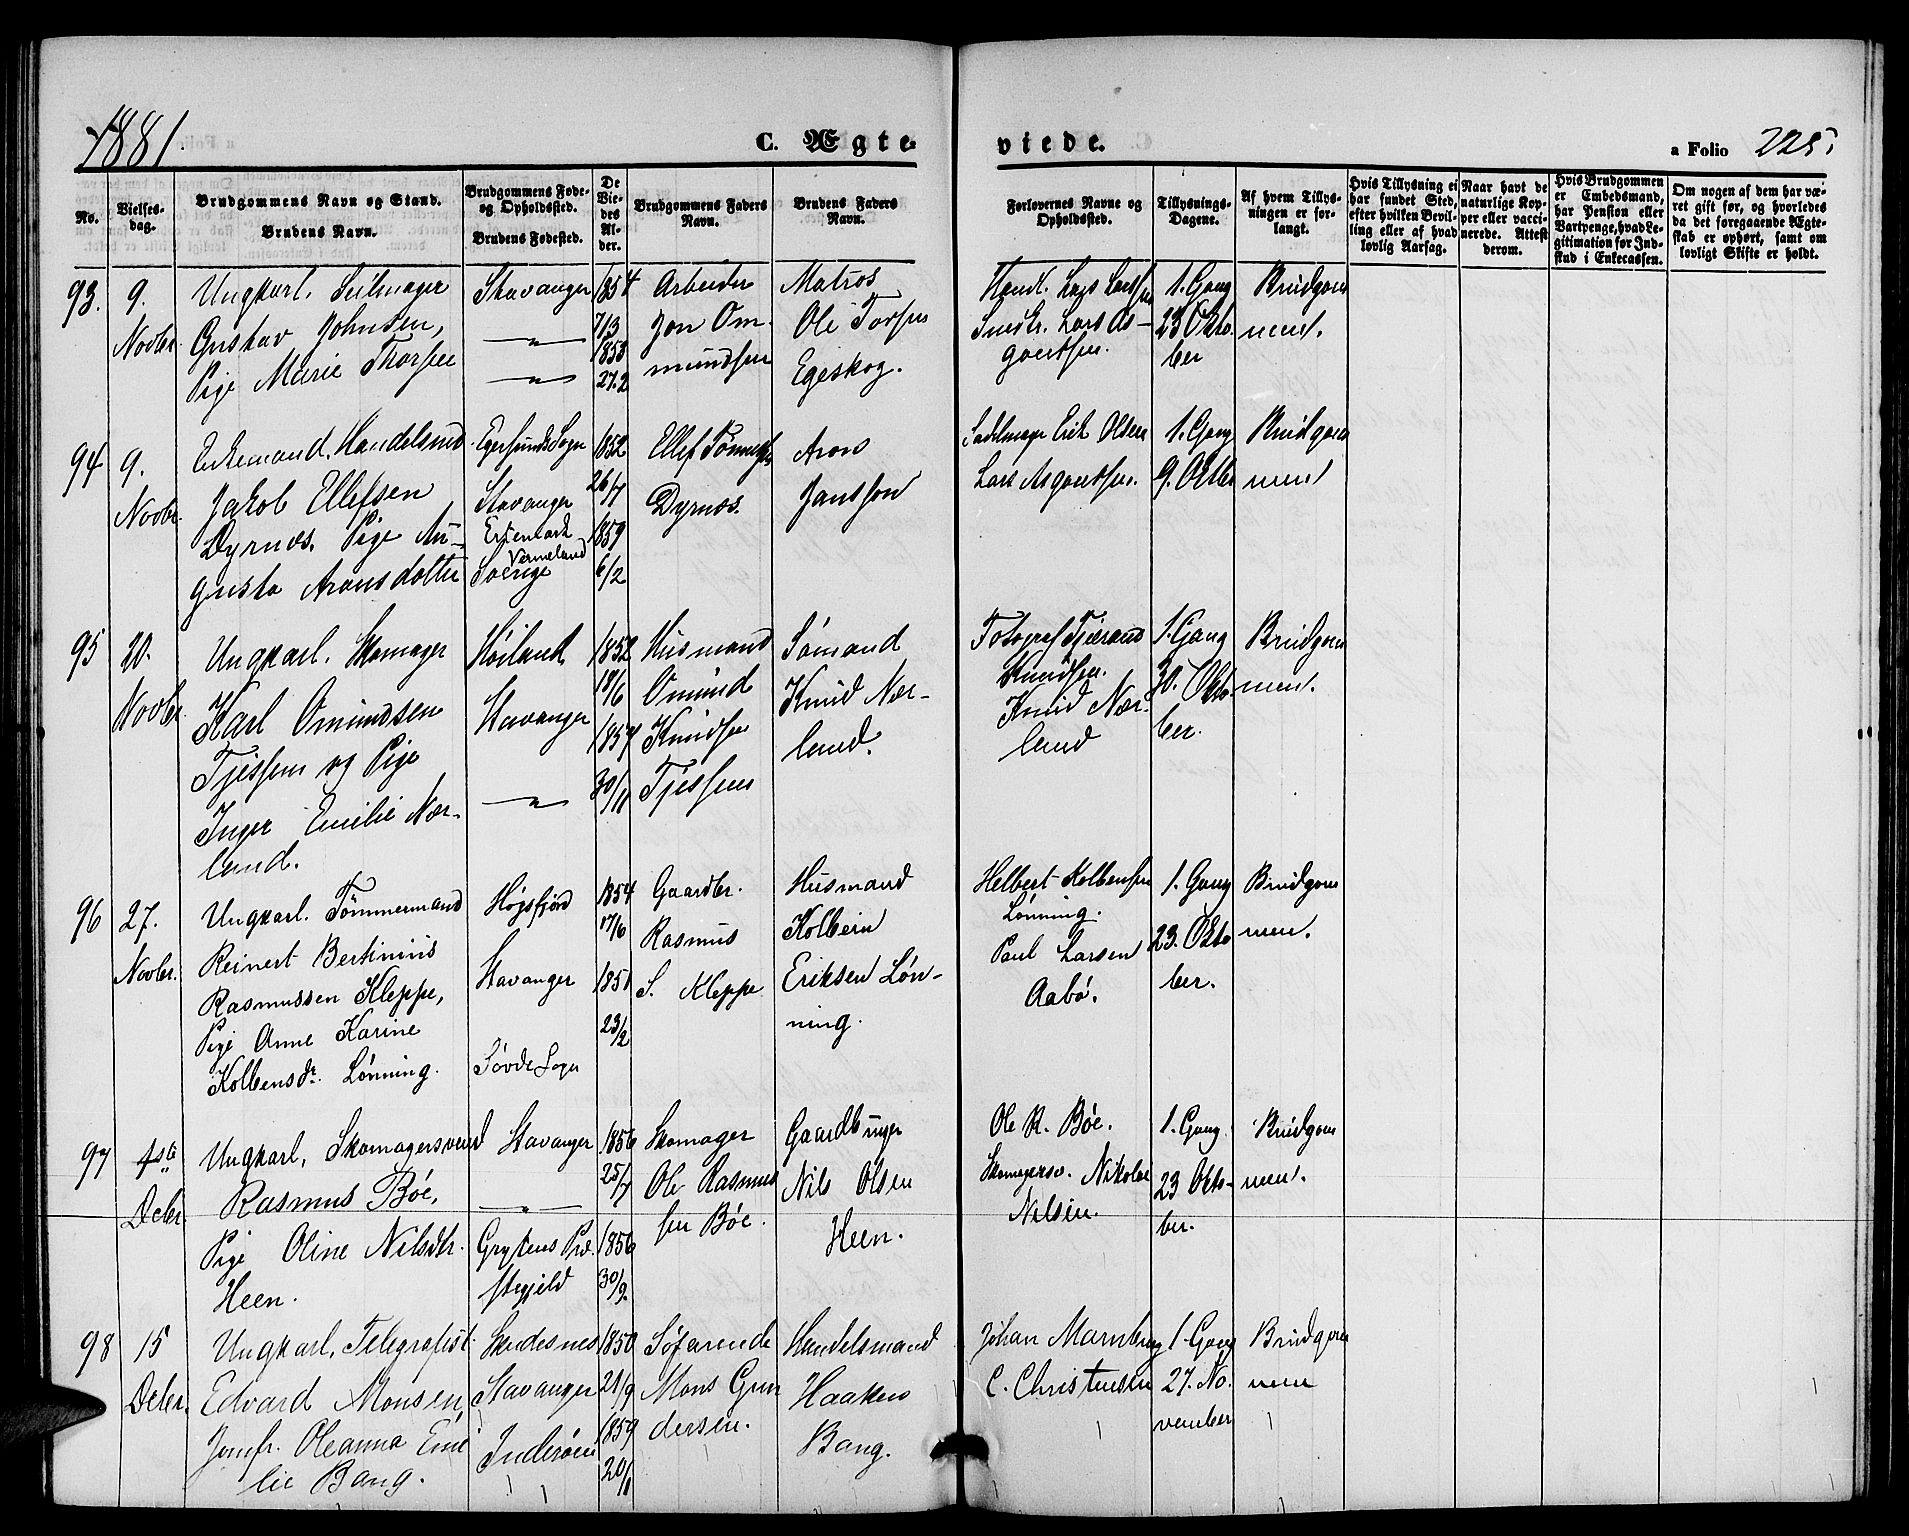 1881.
C. Ægte-
viede.
a Folio 225
No.
Vielses-
dag.
Brudgommens Navn og Stand.
Brudens Navn.
Brudgommens Føde-
og Opholdssted.
Brudens Fødested.
De
Vie-
des
Al-
der.
Brudgommens Faders
Navn.
Brudens Faders
Navn.
Forlovernes Navne og
Opholdssted.
Tillysnings-
Dagene.
Af hvem Tillys-
ningen er for-
langt.
Hvis Tillysning ei
har fundet Sted,
efter hvilken Bevil-
ling eller af hvad
lovlig Aarsag.
Naar havt de
naturlige Kop-
per eller vacci-
nerede. Attest
derom.
Hvis Brudgommen
er Embedsmand,
har Pension eller
Vartpenge, hvad Le-
gitimation for Ind-
skud i Enkecassen.
Om nogen af dem har væ-
ret gift før, og hvorledes
da det foregaaende Ægte-
skab er ophørt, samt om
lovligt Skifte er holdt.
93.
9.
Novbr
Ungkarl. Seilmager
Gustav Johnsen,
Pige Marie Thorsen
Stavanger
—"—
—"—
1854
7/3
1858
27.2
Arbeider
Jon Om-
mundsen
Matros
Ole Torsen
Egeskog.
Handl. Lars Larsen
Snedkr. Lars As-
goutsen.
1. Gang
23 Okto-
ber
Brudgom
men.
94
9.
Novbr.
Enkemand, Handelsmd.
Jakob Ellefsen
Dyrnæs. Pige Au-
gusta Aronsdotter
Egersunds Sogn
Stavanger
Vermeland
Sverige
1852
26/7
1859
6/2
Ellef Tønnesen
Dyrnæs.
Arons
Jansson
Sadelmager Erik Olsen
Lars Asgoutsen.
1. Gang
9. Oktbr
Brudgom
men
95
20.
Novbr
Ungkarl. Skomager
Karl Omundsen
Tjessem og Pige
Inger Emilie Nær-
land.
Høiland
Stavanger
—"—
1852
18/6
1857
30/11
Husmand
Omund
Knudsen
Tjessem
Sømand
Knud Nær-
land.
Fotograf Tjerand
Knudsen.
Knud Nær-
land
1. Gang
30. Okto-
ber.
Brudgom
men.
96
27.
Novbr.
Ungkarl. Tømmermand
Reinert Bertinius
Rasmussen Kleppe,
Pige Anne Karine
Kolbensdr. Lønning.
Høgsfjord
Stavanger
Søvde Sogn
1854
17/6
1851
23/2
Gaardbr.
Rasmus
S. Kleppe
Husmand
Kolbein
Eriksen Løn-
ning.
Helbert Kolbensen
Lønning.
Paul Larsen
Aabø.
1. Gang
23. Okto
ber.
Brudgom
men.
97
4de
Decbr.
Ungkarl, Skomagersvend
Rasmus Bøe,
Pige Oline Nilsdtr.
Heen.
Stavanger
—"—
Grytens Præ-
stegjeld
1856
25/7
1856
30/9.
Skomager
Ole Rasmus
sen Bøe.
Gaardbruger
Nils Olsen
Heen.
Ole R. Bøe.
Skomagersv. Nikolai
Nilsen.
1. Gang.
23 Okto-
ber.
Brudgom
men.
98
15
Decbr.
Ungkarl, Telegrafist.
Edvard Monsen
Jomfr. Oleanna Emi
lie Bang.
Skudesnes
Stavanger
Inderøen
1850
21/9
1859
20/11
Søfarende
Mons Gun
dersen.
Handelsmand
Haaken
Bang.
Johan Marnburg
C. Christensen
1. Gang
27. No-
vember
Brudgom
men